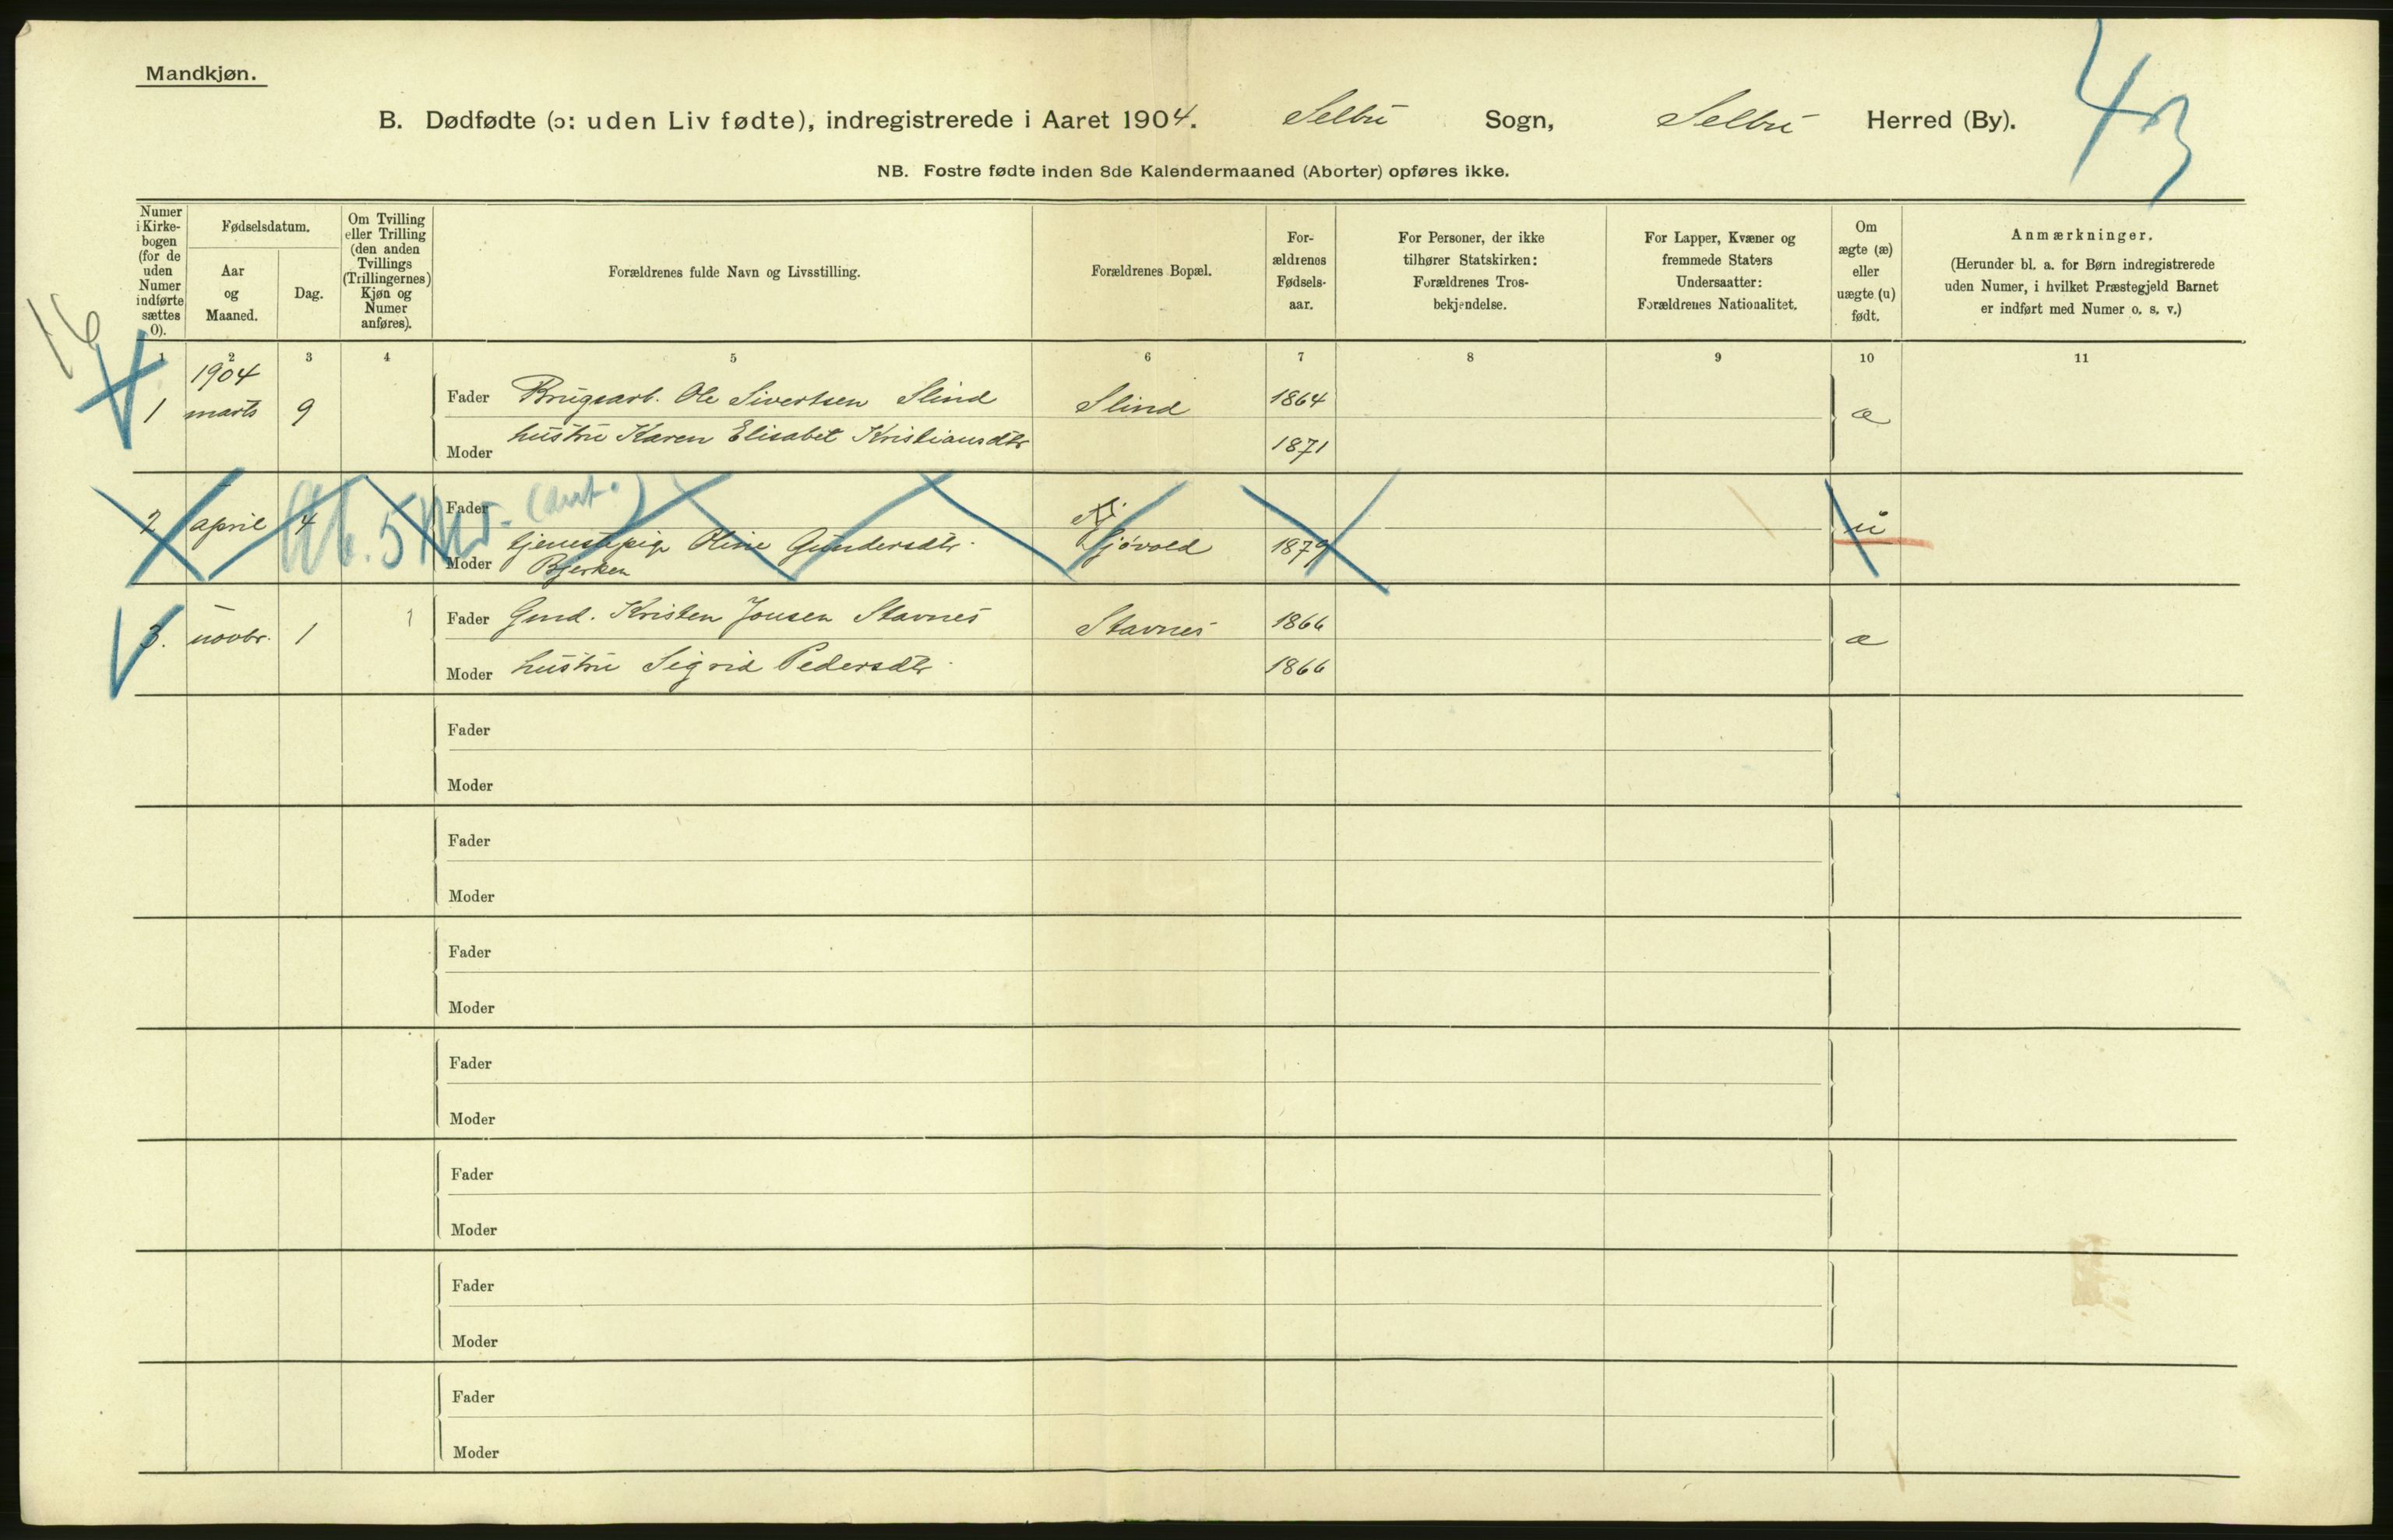 Mandkjøn.
43
B. Dødfødte (ɔ: uden Liv fødte), indregistrerede i Aaret 1904. Selbu Sogn, Selbu Herred (By).
NB. Fostre fødte inden 8de Kalendermaaned (Aborter) opføres ikke.
Numer i Kirkebogen (for de uden Numer indførte sættes 0).
Fødselsdatum.
Aar og Maaned.
Dag.
Om Tvilling eller Trilling (den anden Tvillings (Trillingernes) Kjøn og Numer anføres).
Forældrenes fulde Navn og Livsstilling.
Forældrenes Bopæl.
Forældrenes Fødselsaar.
For Personer, der ikke tilhører Statskirken: Forældrenes Trosbekjendelse.
For Lapper, Kvæner og fremmede Staters Undersaatter: Forældrenes Nationalitet.
Om ægte (æ) eller uægte (u) født.
Anmærkninger.
(Herunder bl. a. for Børn indregistrerede uden Numer, i hvilket Præstegjeld Barnet er indført med Numer o. s. v.)
1 2 3 4 5 6 7 8 9 10 11
16
1904
1 marts 9 Fader Brugsarb. Ole Sivertsen Slind Slind 1864 æ
Moder hustru Karen Elisabet Kristiansdtr 1871
2 april 4 Ab. 5 Fader
Moder tjenestepige Oline Gundersdtr. Bjerken 1879 u
3. novbr. 1 Fader Gmd. Kristen Jonsen Stavnes Stavnes 1866 æ
Moder hustru Sigrid Pedersdtr. 1866
Fader
Moder
Fader
Moder
Fader
Moder
Fader
Moder
Fader
Moder
Fader
Moder
Fader
Moder